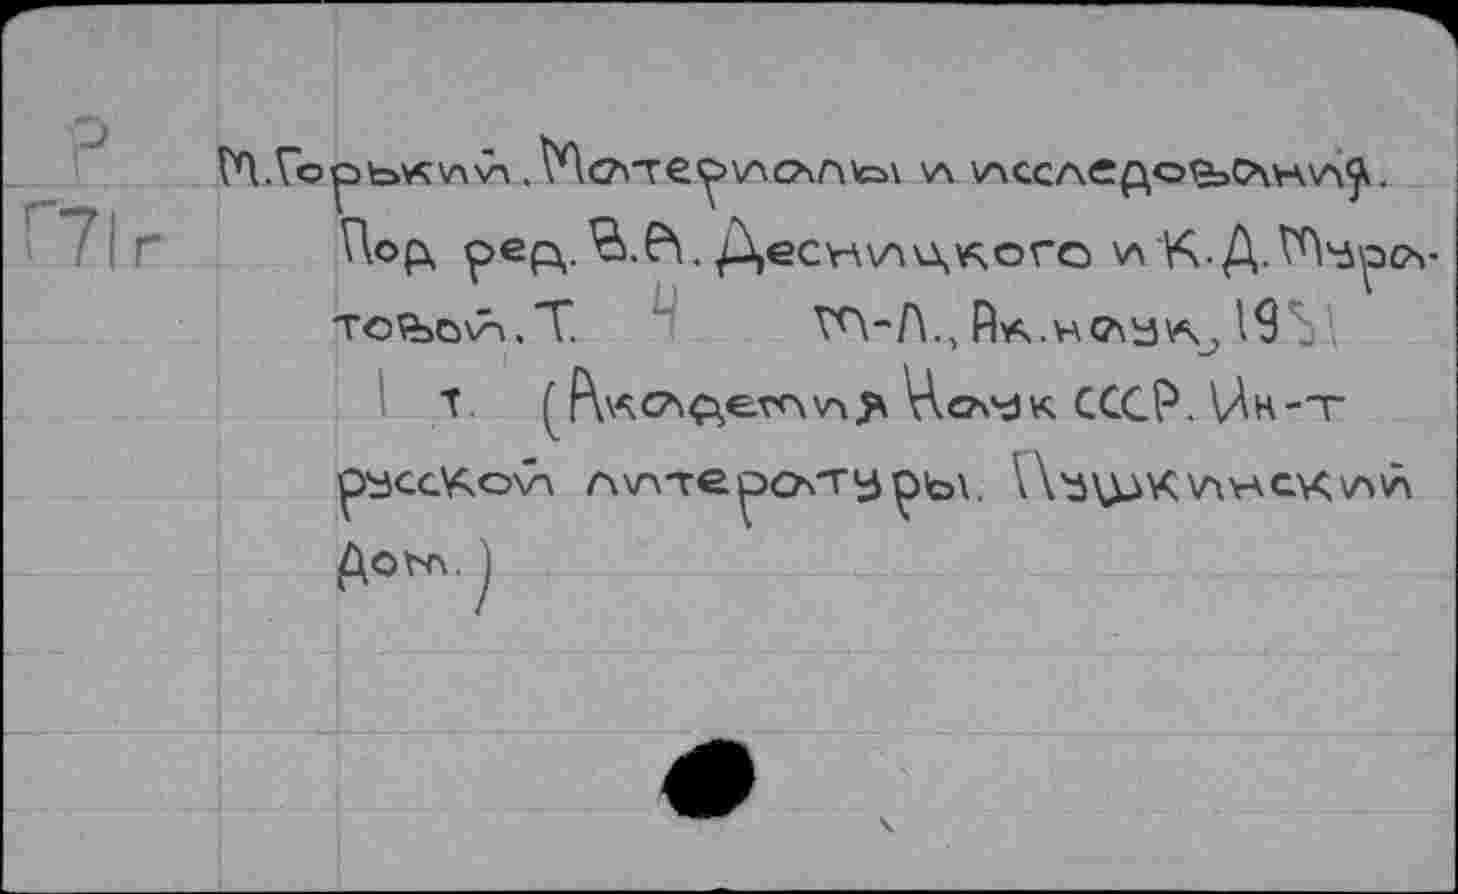 Р
Г71г
М.Горький. Материалы и исследования.
Под ред. В.А. Десницкого и К.Д.Мура-
товой. Т. 4 М-Л., Ак.наук, 1951
1 т. (Академия Наук СССР. Ин-т
русской литературы. Пушкинский
Дом.)